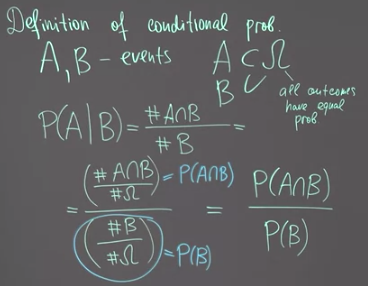 Definition of conditional prob.
A, B – events A ⊂ Ω
B ⊂
all outcomes
have equal
prob
P(A|B) = #A∩B / #B =
= (#A∩B / #Ω) = P(A∩B) / (#B / #Ω) = P(B) = P(A∩B) / P(B)